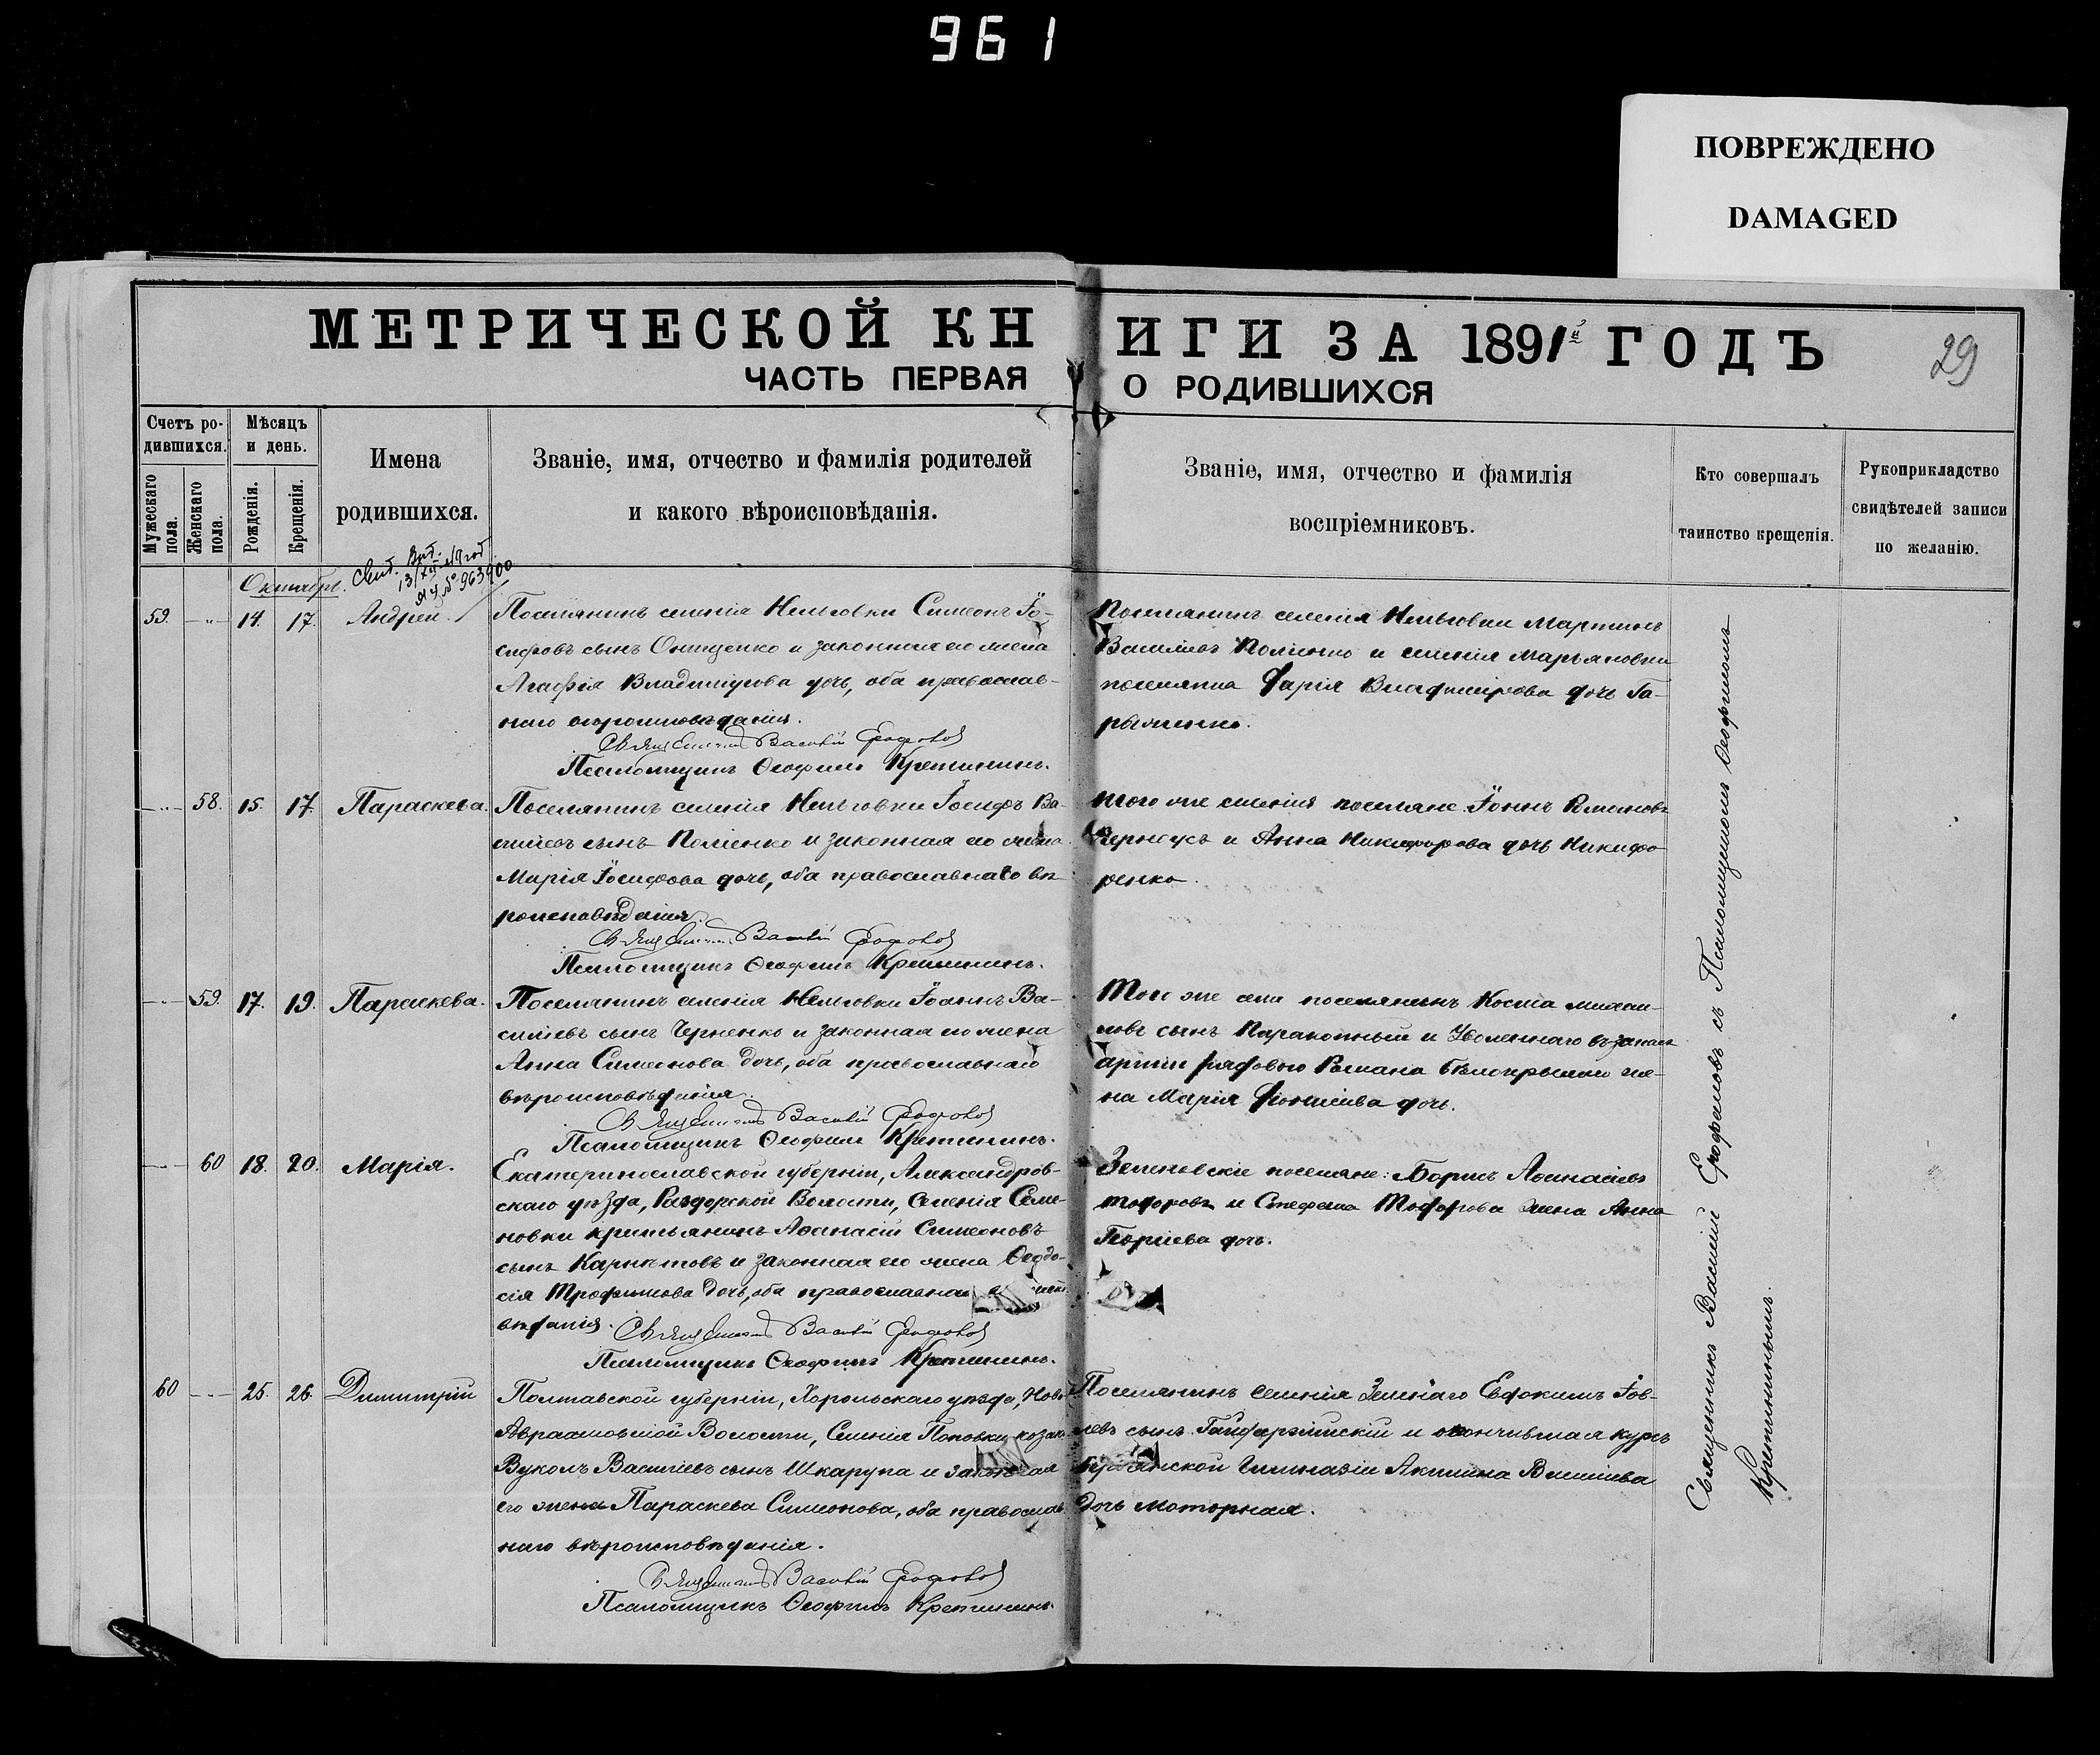 961
ПОВРЕЖДЕНО
DAMAGED
МЕТРИЧЕСКОЙ КНИГИ ЗА 1891й ГОДЪ
29
ЧАСТЬ ПЕРВАЯ О РОДИВШИХСЯ
Счетъ ро-
дившихся.
Мужескаго пола.
Женскаго пола.
Мѣсяцъ
и день.
Рожденія.
Крещенія.
Имена
родившихся.
Званіе, имя, отчество и фамилія родителей
и какого вѣроисповѣданія.
Званіе, имя, отчество и фамилія
воспріемниковъ.
Кто совершалъ
таинство крещенія.
Рукоприкладство
свидѣтелей записи
по желанію.
Октябрь.
59. 14. 17. Андрей.
Поселянинъ селенія Нельговки Симеонъ Іо-
сифовъ сынъ Онищенко и законная его жена
Агафія Владимірова дочь, оба православ-
наго вѣроисповѣданія.
Священникъ Василій Ерофаловъ
Псаломщикъ Ѳеофилъ Кретининъ.
Поселянинъ селенія Нельговки Мартинъ
Василіевъ Поліенко и селенія Марьяновки
поселянка Дарія Владимірова дочь Га-
58. 15. 17. Параскева.
Поселянинъ селенія Нельговки Іосифъ Ва-
силіевъ сынъ Поліенко и законная его жена
Марія Іосифова дочь, оба православнаго вѣ-
роисповѣданія.
Священникъ Василій Ерофаловъ
Псаломщикъ Ѳеофилъ Кретининъ.
того же селенія поселяне Іоаннъ Романовъ
Черноусъ и Анна Никифорова дочь Никифо-
ренко.
59. 17. 19. Параскева.
Поселянинъ селенія Нельговки Іоаннъ Ва-
силіевъ сынъ Черненко и законная его жена
Анна Симеонова дочь, оба православнаго
вѣроисповѣданія.
Священникъ Василій Ерофаловъ
Псаломщикъ Ѳеофилъ Кретининъ.
Того же села поселянинъ Косма Михаи-
ловъ сынъ Каракопный и уволеннаго въ запасъ
арміи рядового Романа Бѣлокрылаго же-
на Марія дочь.
60 18. 20. Марія.
Екатеринославской губерніи, Александров-
скаго уѣзда, Раздорской Волости, Селенія Семе-
новки крестьянинъ Аѳанасій Симеоновъ
сынъ Карпѣтовъ и законная его жена Ѳеодо-
сія Трофимова дочь, оба православна
вѣданія.
Священникъ Василій Ерофаловъ
Псаломщикъ Ѳеофилъ Кретининъ.
Зеленовскіе поселяне: Борисъ Аѳанасіевъ
Тодоровъ и Стефана Тодорова жена Анна
Георгіева дочь.
60 25. 26. Димитрій
Полтавской губерніи, Хорольскаго уѣзда, Ново-
Аврамовской Волости, Селенія Поповки козакъ
Вуколъ Василіевъ сынъ Шкарупа и законная
его жена Параскева Симеонова, оба православ-
наго вѣроисповѣданія.
Священникъ Василій Ерофаловъ
Псаломщикъ Ѳеофилъ Кретининъ.
Поселянинъ селенія Зеленаго Евдокимъ Іов-
левъ сынъ Гайдаржійскій и окончившая курсъ
Бердянской Гимназіи Акилина Василіева
дочь Моторная.
Священникъ Василій Ерофаловъ съ Псаломщикомъ Ѳеофиломъ
Кретининымъ.